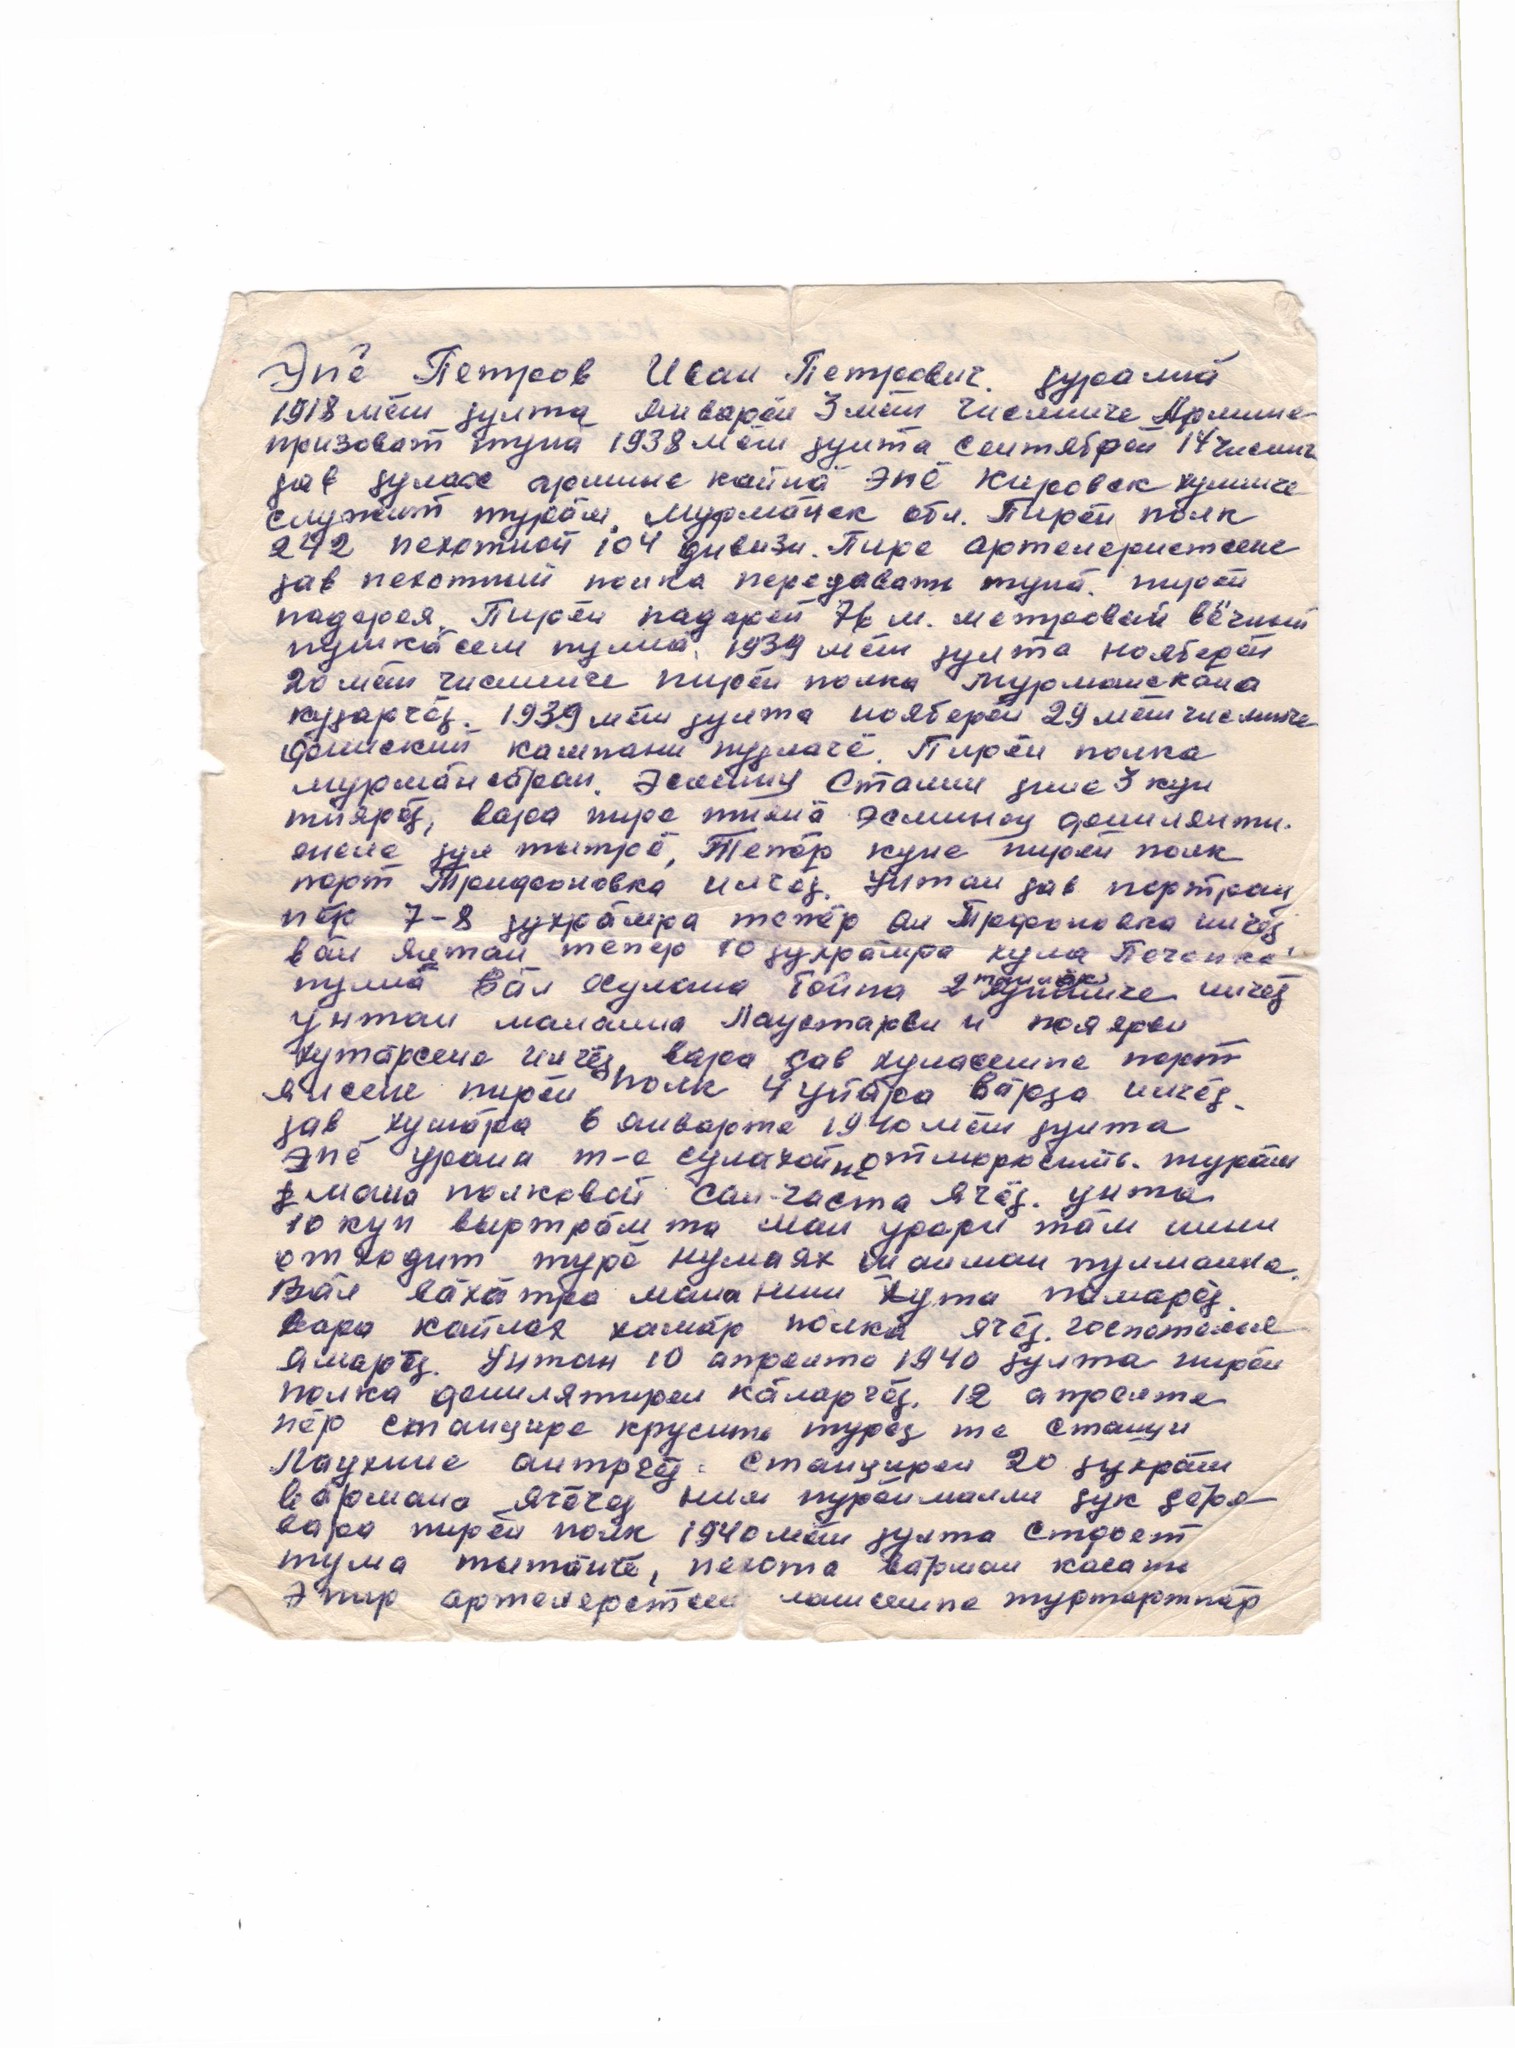 Эпĕ Петров Иван Петрович. зуралнă
1918 мĕш зулта январĕн 3 мĕш числинче Армине
призоват тунă 1938 мĕш зулта сентябрĕн 14 числинче
зав зулах армине кайнă Эпĕ Кировск хулинче
служит турăм. Мурманск обл. Пирĕн полк
242 пехотной 104 дивизи. Пире артелеристсене
зав пехотный полка передавать тунă. пирĕн
падерея. Пирĕн падерей 76 м. метровый
пушкăсем пулнă. 1939 мĕш зулта ноябĕрĕн
20 мĕш числинче пирĕн полка Мурманскăна
кузарчĕз. 1939 мĕш зулта ноябĕрĕн 29 мĕш числинче
финский кампани пузланчĕ. Пирĕн полка
Мурман обран. Эсминец Сталин зине 3 кун
тиярĕз, вара пире тинĕ эсминец финлянти.
енеле зул тытрĕ, Тепĕр куне пирĕн полк
порт Трифоновка илчĕз. Унтан зав портран
пĕр 7-8 зухрăмра тепĕр ял Трфоновка илчĕз
вăл ялтан тепĕр 10 зухрăмра хула Печенка
пулнă Вăл хулана бойпа 2 талăк илчĕз
Унтан малалла Лаустарви и
хутăрсене илчĕз, вара зав хуласемпе порт
ялсене пирĕн полк 4 уйăра вăрза илчĕз.
зав хушăра 6 январте 1940 мĕш зулта
Эпĕ урана т-е сулахайне отморосить турăм
мана полковой сан-часта ячĕз. унта
10 кун выртрăм та ман урари тăм шăни
отходит турĕ нумаях шăнман пулманна.
Вăл вăхăтра мана йыш хута памарĕз.
вара каялла хамăр полка ячĕз. госпитальне
ямарĕз. Унтан 10 апрельте 1940 зулта пирĕн
полка финлятирен кăларчĕз. 12 апрельте
пĕр станцире крусить турĕз те станци
Лаухине антрчĕз. станцирен 20 зухрăм
вăрмана ячĕчĕз ним пурăнмалли зук зĕре
вара пирĕн полк 1940 мĕш зулта строет
тума тытăнчĕ, пехота вăрман касать
Эпир артелерстсем лашасемпе турттартпăр